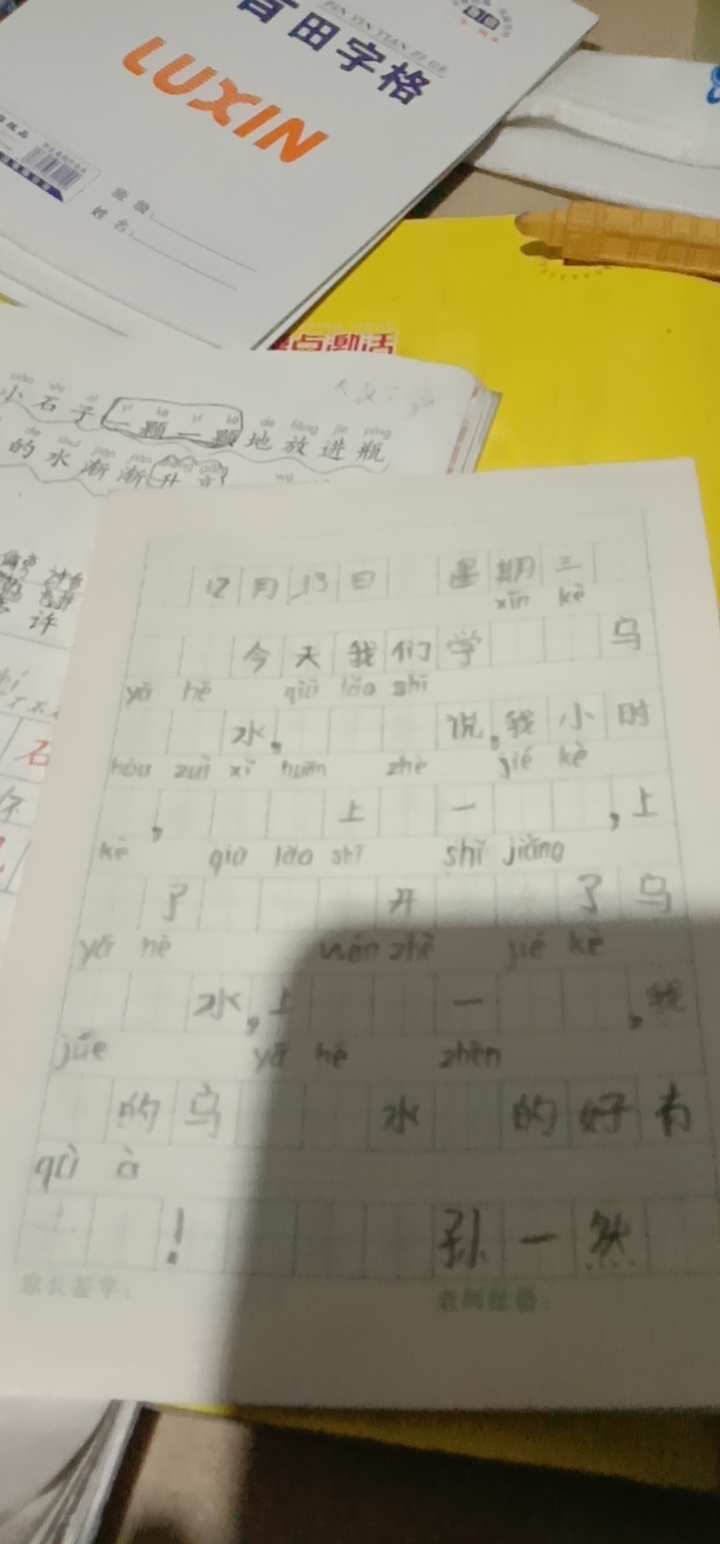 PIN YIN TIAN ZI GE
音田字格
LUXIN
班级:
姓名:
点激活
xiǎo shí zǐ yì kē yì kē de fàng jìn píng
小石子一颗一颗地放进瓶
de shuǐ jiàn jiàn shēng gāo
的水渐渐升高
许
石
12月13日 星期三
xīn kè
今天我们学 乌
yā hē qiū lǎo shī
水, 说,我小时
hòu zuì xǐ huān zhè jié kè
, 上一 ,上
kè qiū lǎo shī shǐ jiǎng
了 开 了乌
yā hē wén zhè jié kè
水,上 一 ,我
júe yā hē zhēn
的乌 水 的好有
qù à
! 孙一然
家长签字: 老师批语: